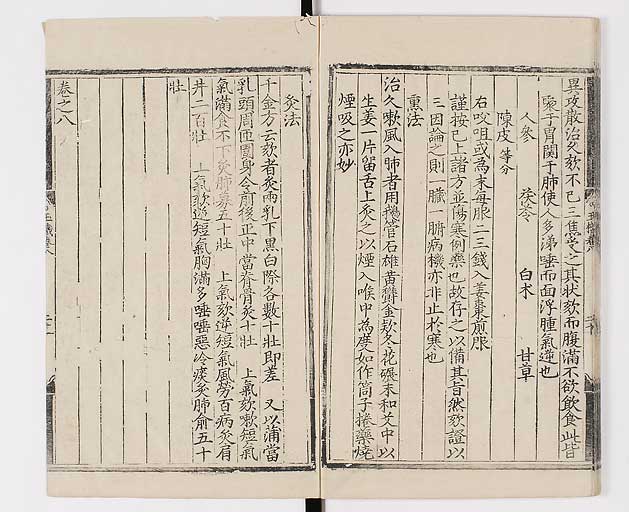 異攻散治久欬不已三焦受之其狀欬而腹滿不欲飲食此皆
聚于胃關于肺使人多涕唾而面浮腫氣逆也
人參 茯苓 白朮 甘草
陳皮等分
右㕮咀或為末每服二三錢入姜棗煎服
謹按已上諸方並傷寒例藥也故存之以備其旨然欬證以
三因論之則一臟一腑病機亦非止於寒也
熏法
治久嗽風入肺者用鵝管石雄黃鬱金款冬花碾末和艾中以
生姜一片留舌上灸之以煙入喉中為度如作筒子捲藥燒
煙吸之亦妙
灸法
千金方云欬者灸兩乳下黑白際各數十壯即差 又以蒲當
乳頭周匝圍身令前後正中當脊骨灸十壯 上氣欬嗽短氣
氣滿食不下灸肺募五十壯 上氣欬逆短氣風勞百病灸肩
井二百壯 上氣欬逆短氣胸滿多唾唾惡冷痰灸肺俞五十
壯
卷之八